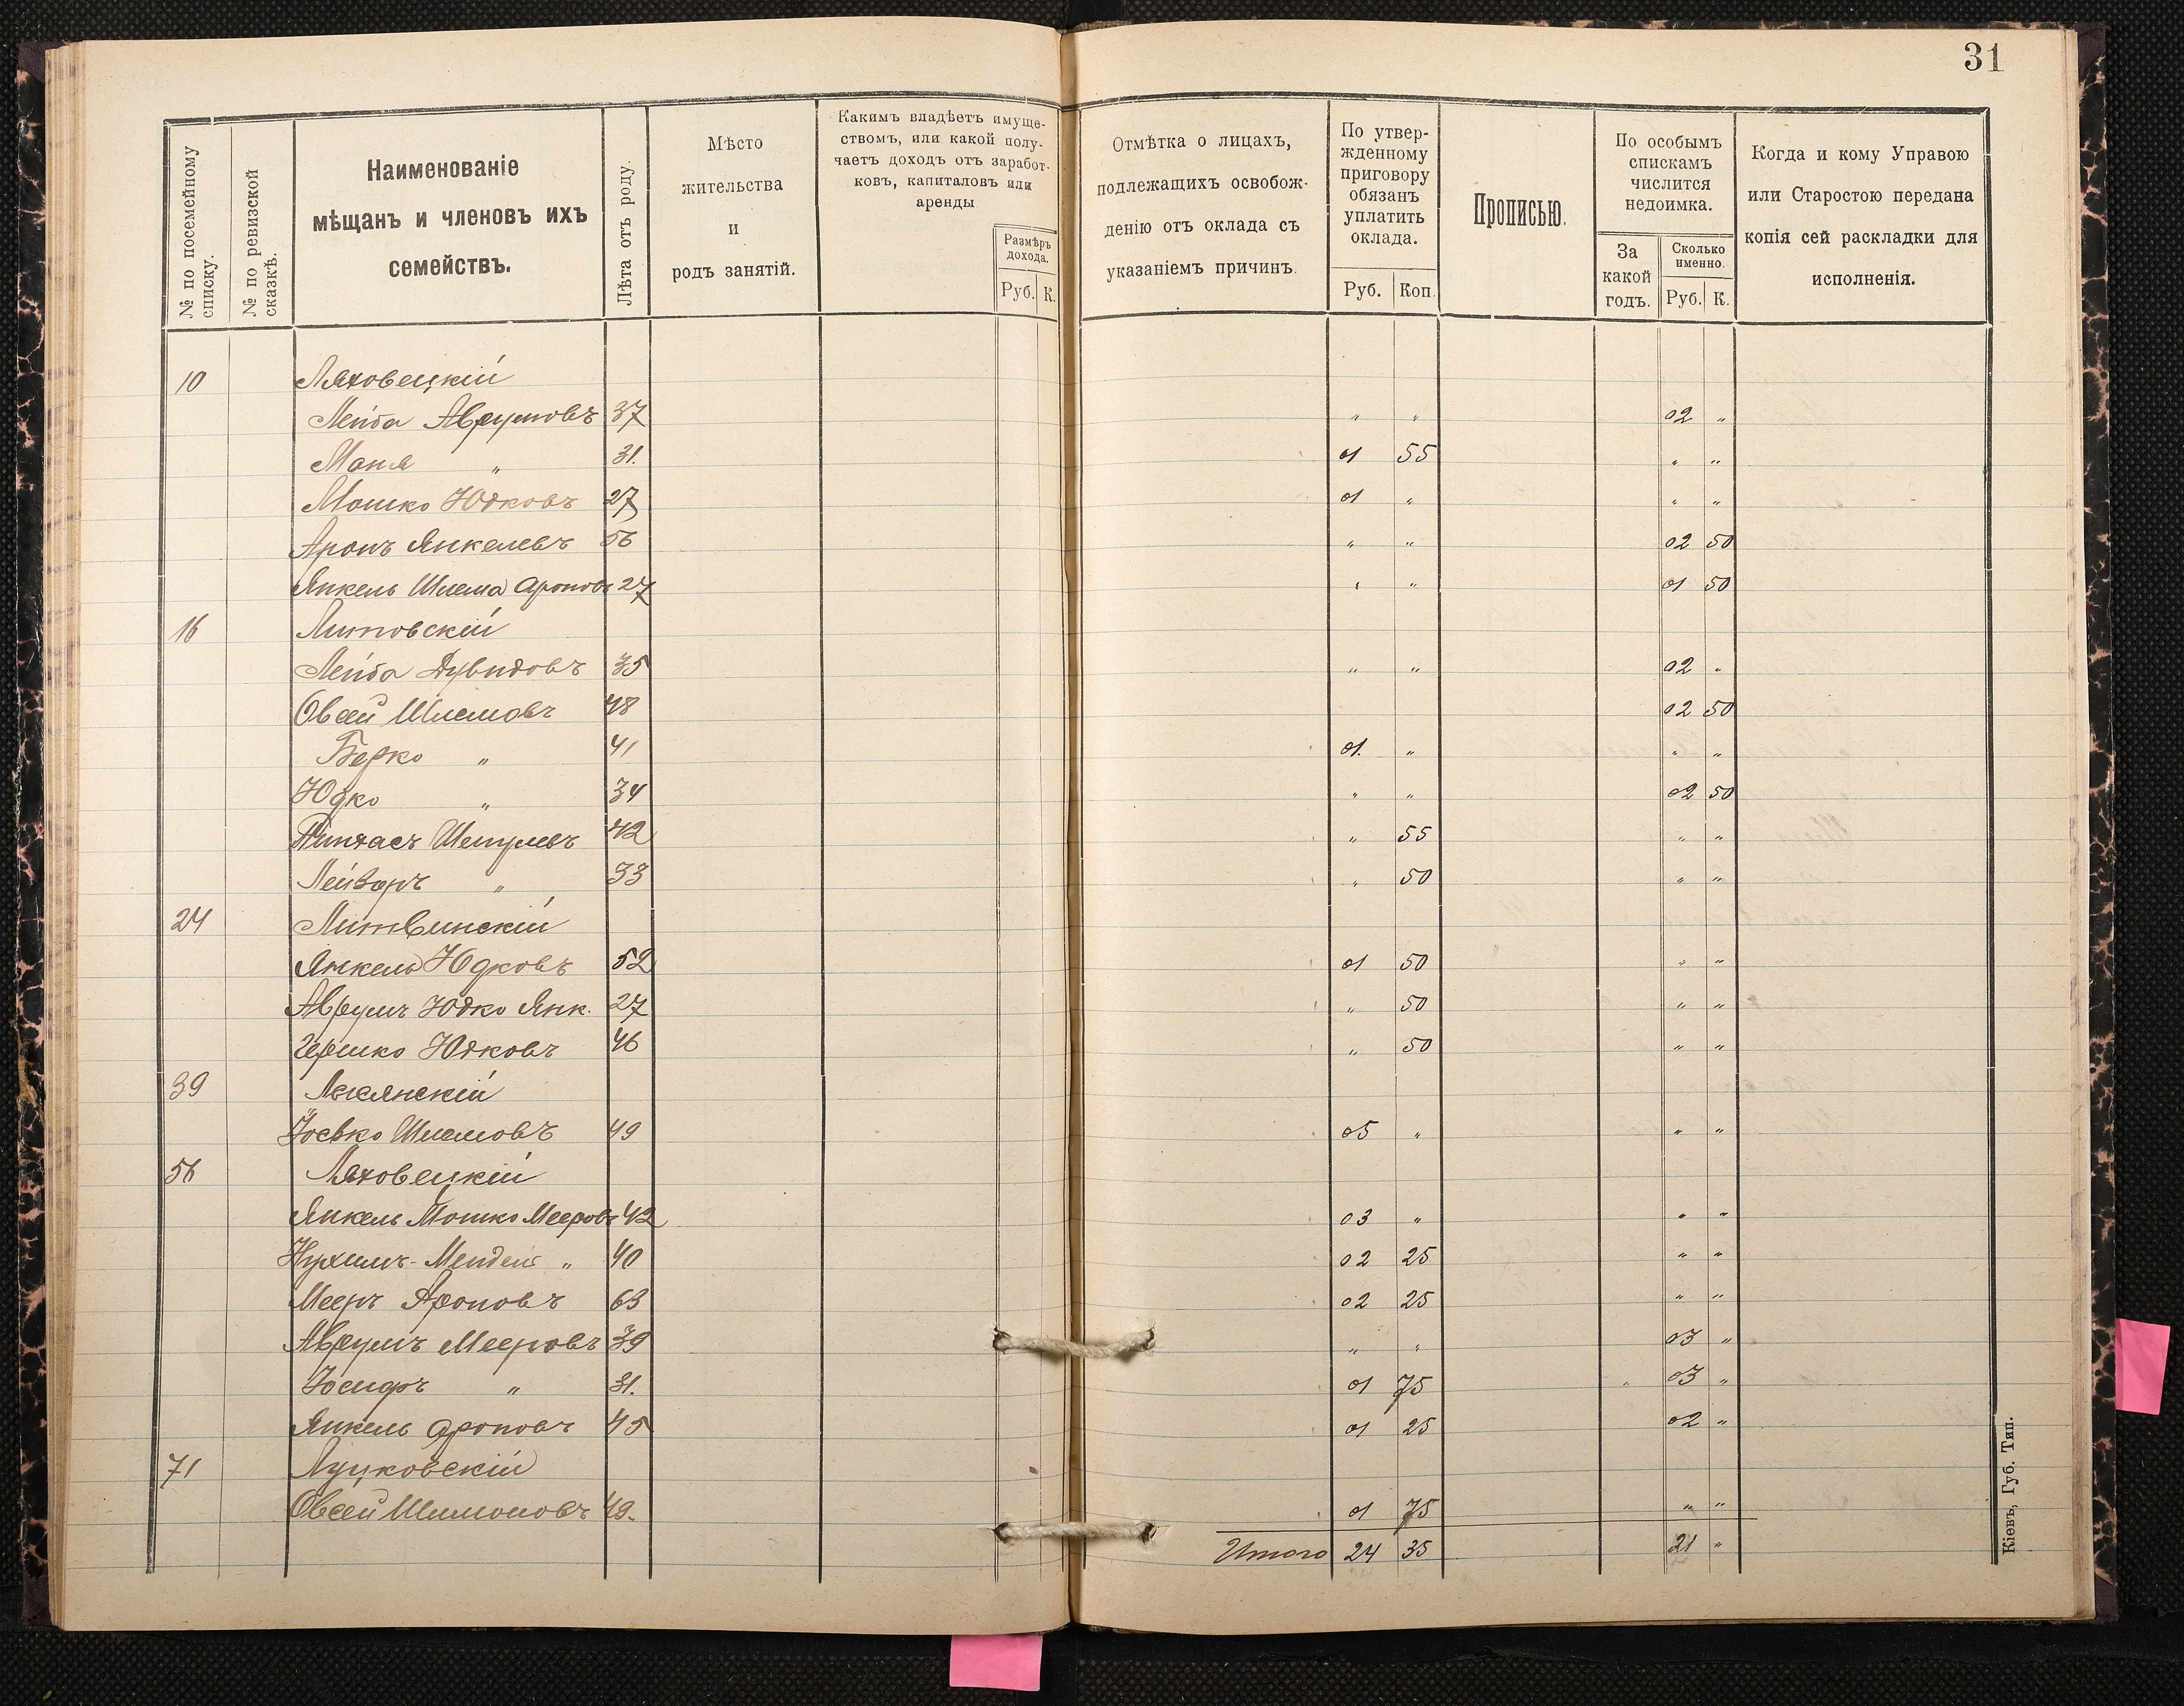 31
№ по посемейному списку.
№ по ревизской сказкѣ.
Наименованіе
мѣщанъ и членовъ ихъ
семействъ.
Лѣта отъ роду.
Мѣсто
жительства
и
родъ занятій.
Какимъ владѣетъ имуще-
ствомъ, или какой полу-
чаетъ доходъ отъ заработ-
ковъ, капиталовъ или
аренды
Размѣръ
дохода.
Руб. К.
Отмѣтка о лицахъ,
подлежащихъ освобож-
денію отъ оклада съ
указаніемъ причинъ.
По утвер-
жденному
приговору
обязанъ
уплатить
оклада.
Руб. Коп.
Прописью.
По особымъ
спискамъ
числится
недоимка.
За
какой
годъ.
Сколько
именно.
Руб. К.
Когда и кому Управою
или Старостою передана
копія сей раскладки для
исполненія.
10 Ляховецкій
Лейба Аврумовъ 37 " " 02 "
Маня " 31. 01 55 " "
Мошко Юдковъ 27 01 " " "
Аронъ Янкелевъ 56 " " 02 50
Янкель Шлема Ароновъ 27 " " 01 50
16 Литовскій
Лейба Дувидовъ 35 " " 02 "
Овсей Шлемовъ 48 02 50
Берко " 41 01. " " "
Юдко " 34 " " 02 50
Пинхасъ Шмулевъ 42 " 55 " "
Лейзоръ " 33 " 50 " "
24 Литвинскій
Янкель Юдковъ 52 01 50 " "
Аврумъ Юдко Янк. 27 " 50 " "
Гершко Юдковъ 46 " 50 " "
39 Лысянскій
Іосько Шлемовъ 49 05 " " "
56 Ляховецкій
Янкель Мошко Мееровъ 42 03 " " "
Нухимъ-Мендель " 40 02 25 " "
Мееръ Ароновъ 63 02 25 " "
Аврумъ Мееровъ 39 " " 03 "
Іосифъ " 31. 01 75 03 "
Янкель Ароновъ 45 01 25 02 "
71 Луцковскій
Овсей Шимоновъ 49. 01 75 " "
Итого 24 35 21 "
Кіевъ, Губ. Тип.